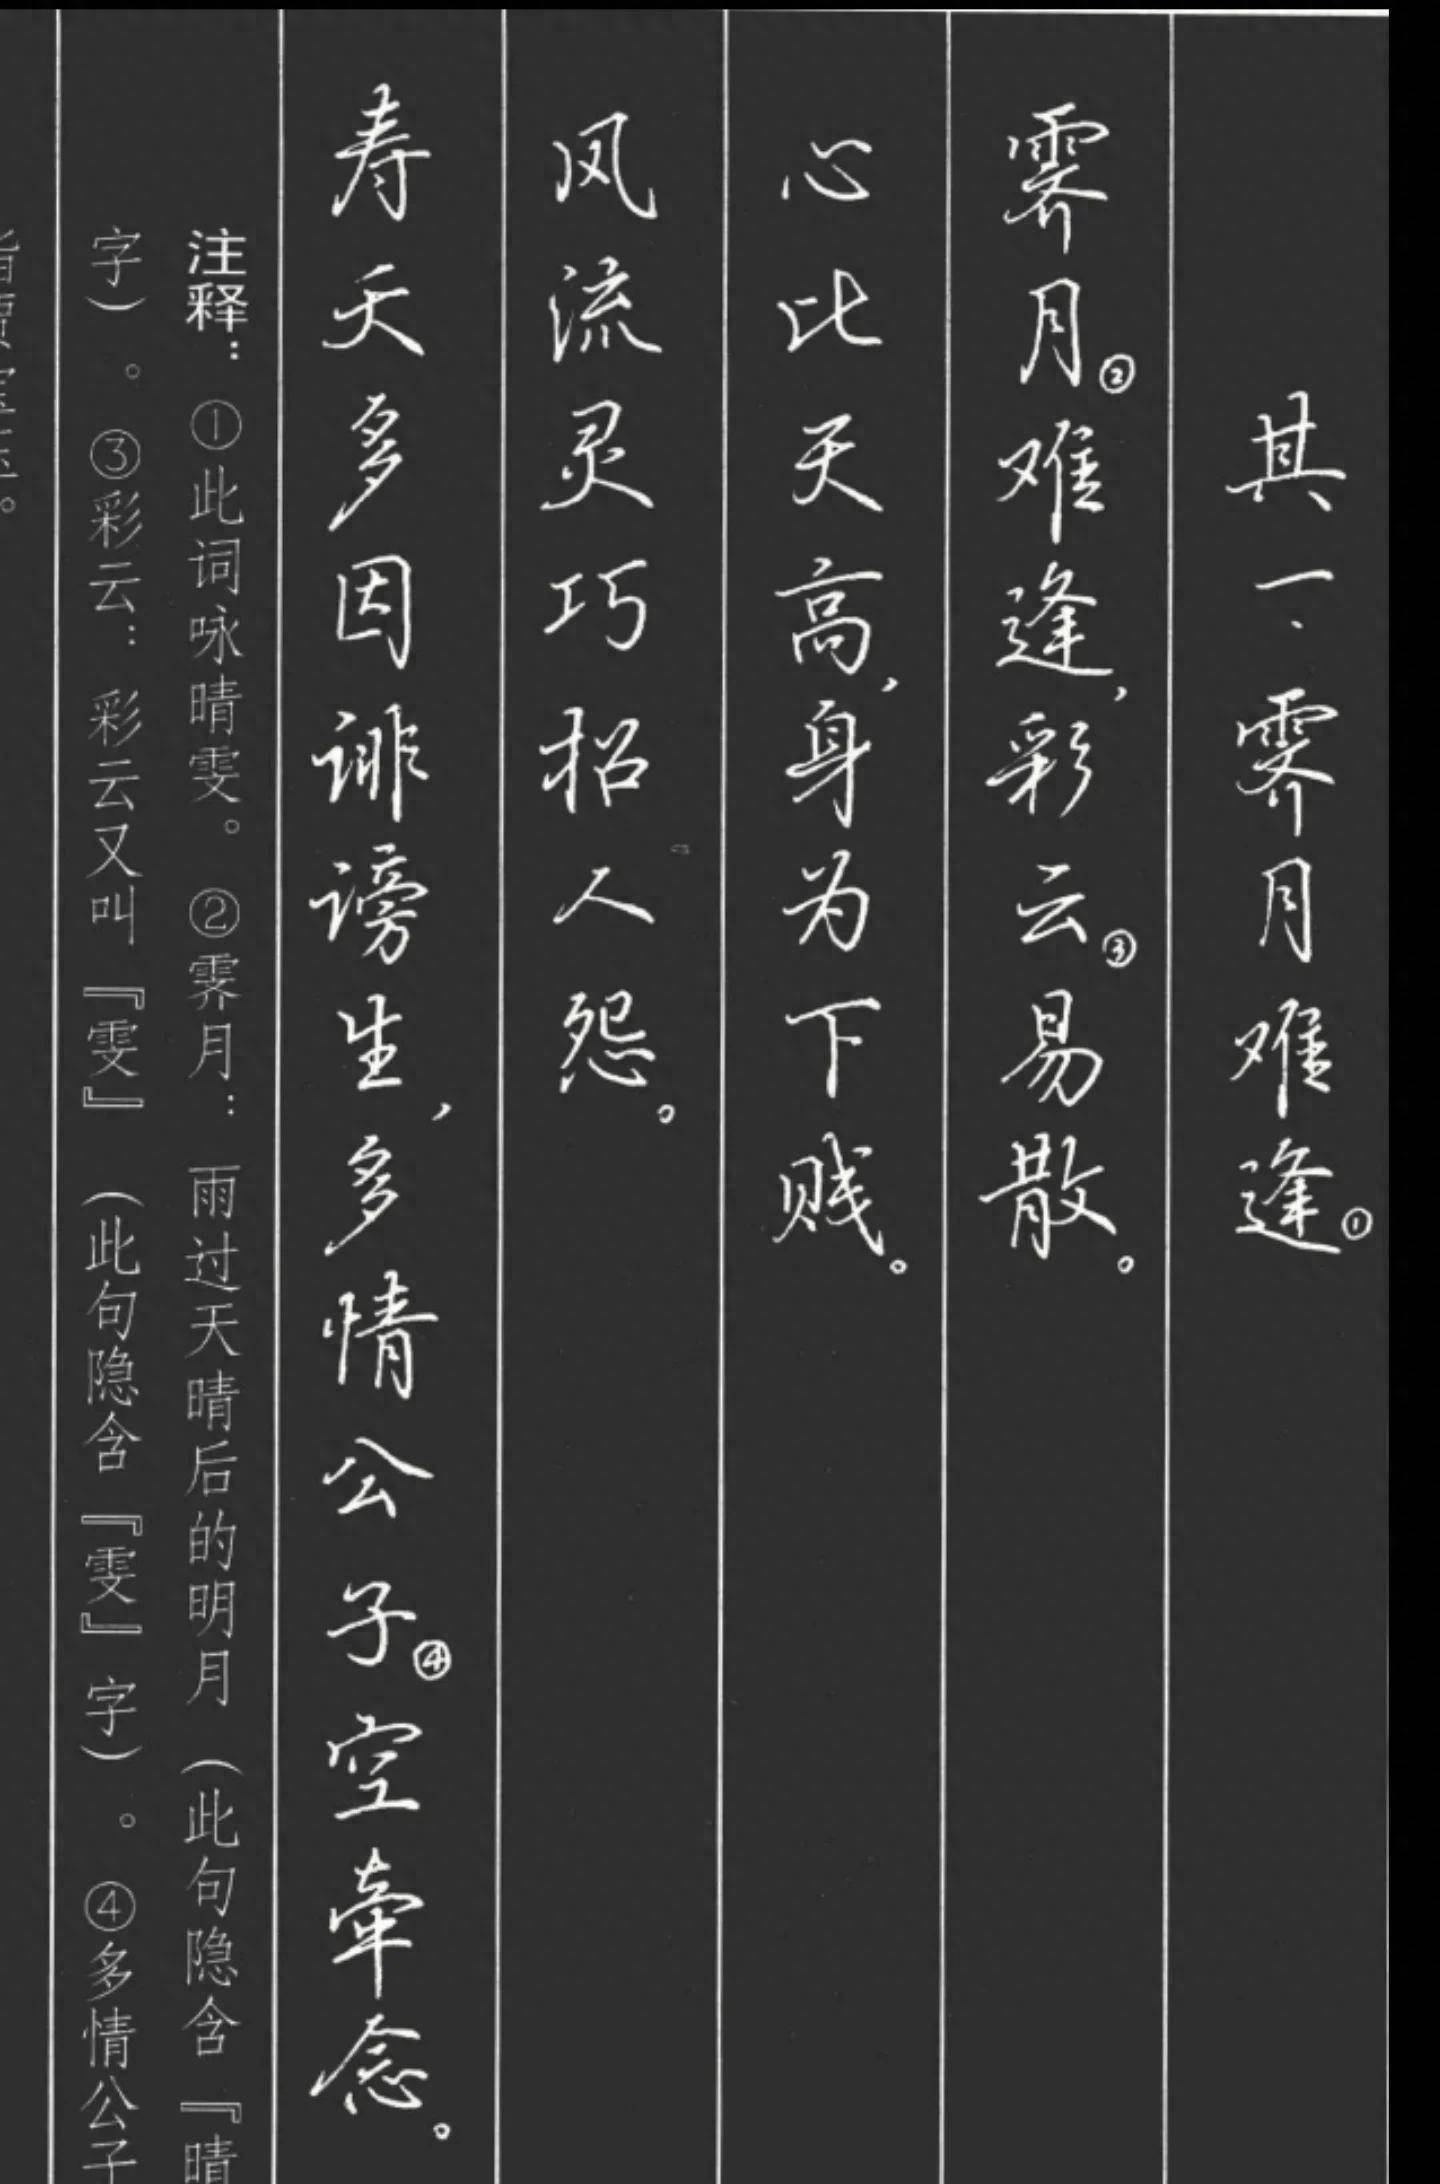 其一·霁月难逢①
霁月②难逢，彩云③易散。
心比天高，身为下贱。
风流灵巧招人怨。
寿夭多因诽谤生，多情公子④空牵念。
注释：①此词咏晴雯。②霁月：雨过天晴后的明月（此句隐含『晴
字）。③彩云：彩云又叫『雯』（此句隐含『雯』字）。④多情公子
指贾宝玉。